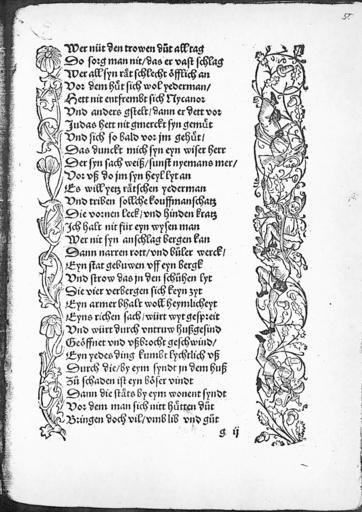 Wer nüt den trowen důt all tag
Do sorg man nit/das er vast schlag
Wer all syn rät schlecht öfflich an
Vor dem hüt sich wol yederman/
Hett nit entfrembt sich Nycanor
Vnd anders gstelt/dann er dett vor
Judas hett nit gmerckt syn gemüt
Vnd sich so bald vor jm gehüt/
Das dunckt mich syn eyn wiser herr
Der syn sach weiß/sunst nyemans mer/
Vor vß do jm syn heyl lyt an
Es will yetz rätschen yederman
Vnd triben solliche kouffmanschatz
Die vornen leck/vnd hinden kratz
Ich halt nit für eyn wysen man
Wer nit syn anschlag bergen kan
Dann narren rott/vnd büler werck/
Eyn statt gebuwen vff eym bergk
Vnd strow das jn den schůhen lyt
Die vier verbergen sich keyn zyt
Eyn armer bhalt woll heymlicheyt
Eyns richen sach/würt wyt gespreit
Vnd würt durch vntruw hußgesind
Geöffnet vnd vßbrocht geschwind/
Eyn yedes ding kumbt lychtlich vß
Durch die/by eym syndt jn dem huß
Zů schaden ist eyn böser vindt
Dann die stäts by eym wonent syndt
Vor dem man sich nitt hütten důt
Bringen doch vil/vmb lib vnd gůt
g ij